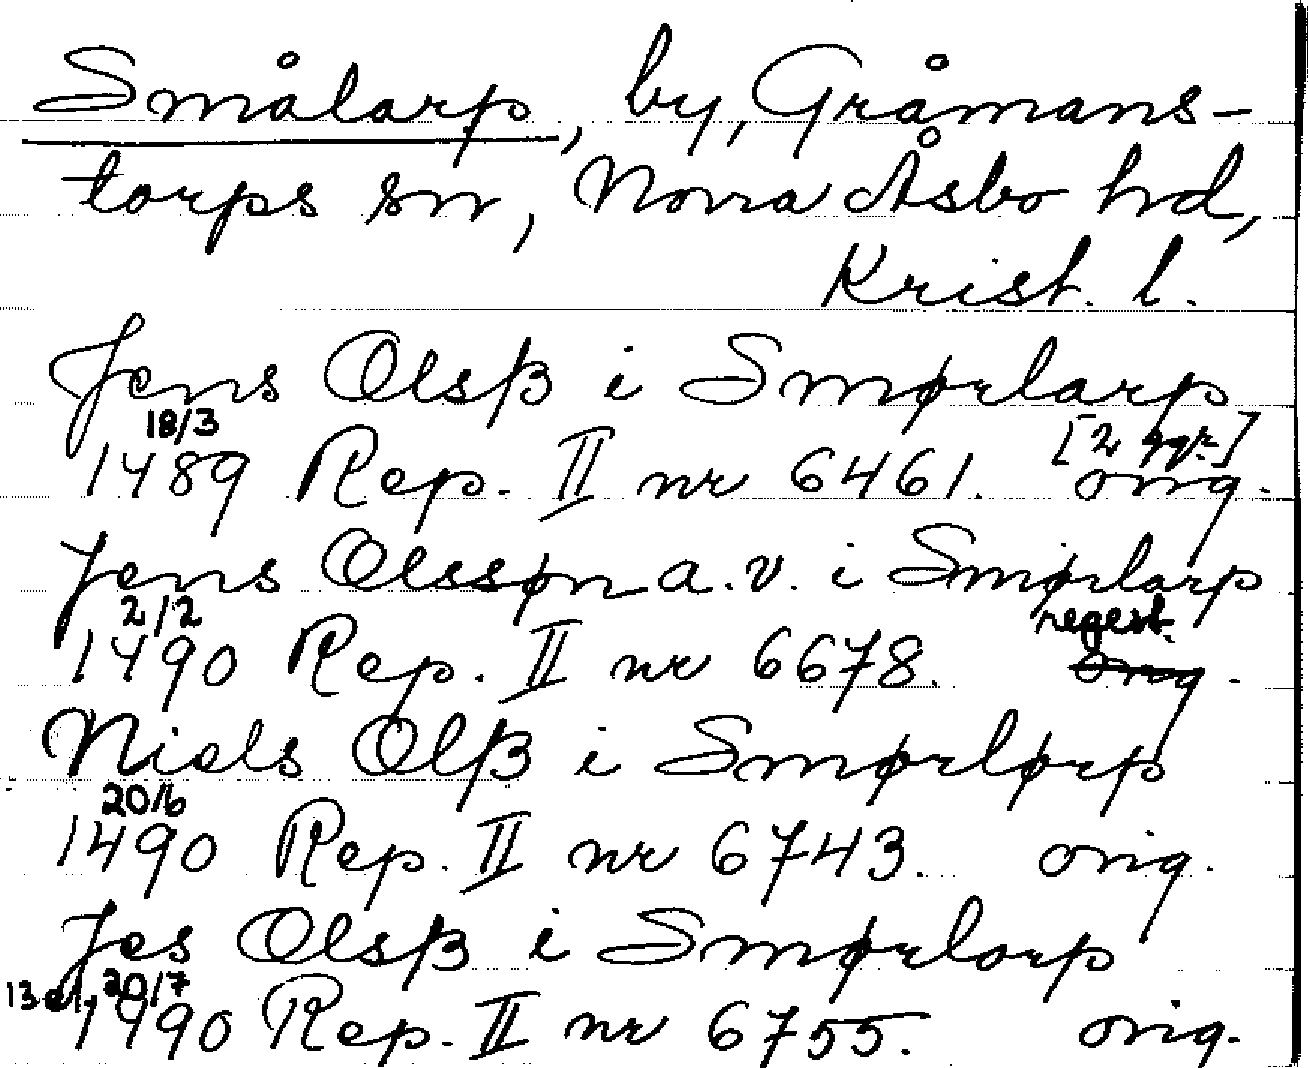 Smålarp, by, Gråmans-
torps sn, Norra Åsbo hd,
Krist. l.
Jens Olsß i Smørlarp
18/3 [2 ggr]
1489 Rep. II nr 6461. orig.
Jens Olssøn a.v. i Smørlarp
2/2 regest.
1490 Rep. II nr 6678. orig.
Niels Olß i Smørlørp
20/6
1490 Rep. II nr 6743. orig.
Jes Olsß i Smørlorp
13 el. 20/7
1490 Rep. II nr 6755. orig.